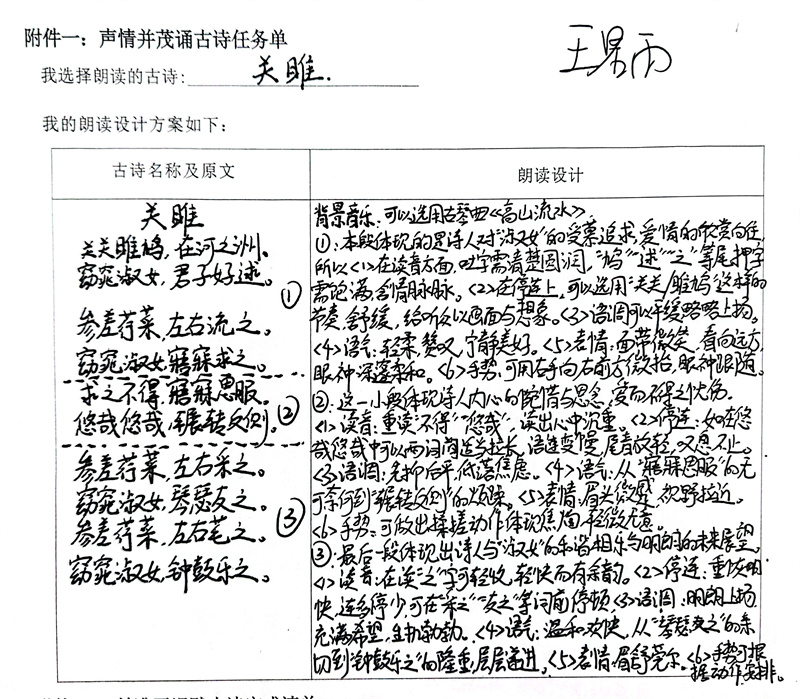 附件一：声情并茂诵古诗任务单
王果雨
我选择朗读的古诗：关雎.
我的朗读设计方案如下：
古诗名称及原文
朗读设计
关雎
关关雎鸠，在河之洲。
窈窕淑女，君子好逑。
①
参差荇菜，左右流之。
窈窕淑女，寤寐求之。
求之不得，寤寐思服。
悠哉悠哉，辗转反侧。
②
参差荇菜，左右采之。
窈窕淑女，琴瑟友之。
③
参差荇菜，左右芼之。
窈窕淑女，钟鼓乐之。
背景音乐：可以选用古琴曲《高山流水》
①：本段体现的是诗人对"淑女"的爱慕追求，爱情的欣赏向往，
所以<1>在读音方面，吐字需清楚圆润，"鸠""逑""之"等尾押字
需饱满，含情脉脉。<2>在停连上，可以选用"关关/雎鸠"这样的
节奏，舒缓，给听众以画面与想象。<3>语调可以平缓略略上扬。
<4>语气：轻柔，赞叹，宁静美好。<5>表情：面带微笑，看向远方，
眼神深邃柔和。<6>手势：可用右手向右前方微抬，眼神跟随。
②：这一小段体现诗人内心的惋惜与思念，爱而不得之忧伤。
<1>读音：重读"不得""悠哉"，读出心中沉重。<2>停连：如在悠
哉悠哉中可以两词间适当拉长，语速变慢，尾音放轻，叹息不止。
<3>语调：先抑后平，低落焦虑。<4>语气：从"寤寐思服"的无
可奈何到"辗转反侧"的烦躁。<5>表情：眉头微蹙，视野拉近。
<6>手势：可做出揉搓动作体现焦恼，轻微无意。
③：最后一段体现出诗人与"淑女"的和谐相乐与明朗的未来展望。
<1>读音：在读"之"字可轻收，轻快而有余韵。<2>停连：重快明
快，连多停少，可在"采之""友之"等词前停顿。<3>语调：明朗上扬，
充满希望，生机勃勃。<4>语气：温和欢快，从"琴瑟友之"的亲
切到"钟鼓乐之"的隆重，层层递进。<5>表情：眉舒莞尔。<6>手势可根
据动作安排。